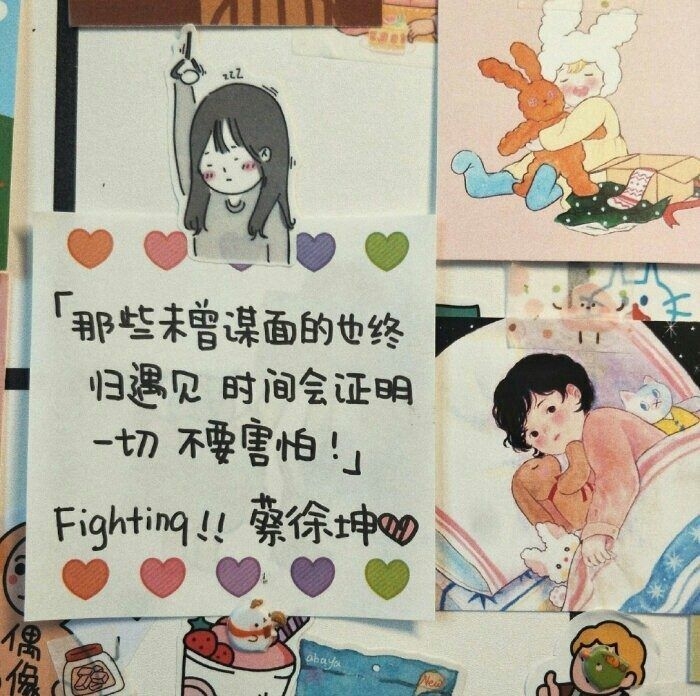 zzZ
「那些未曾谋面的也终
归遇见 时间会证明
一切 不要害怕！」
Fighting!! 蔡徐坤
偶
像
ahaya
New